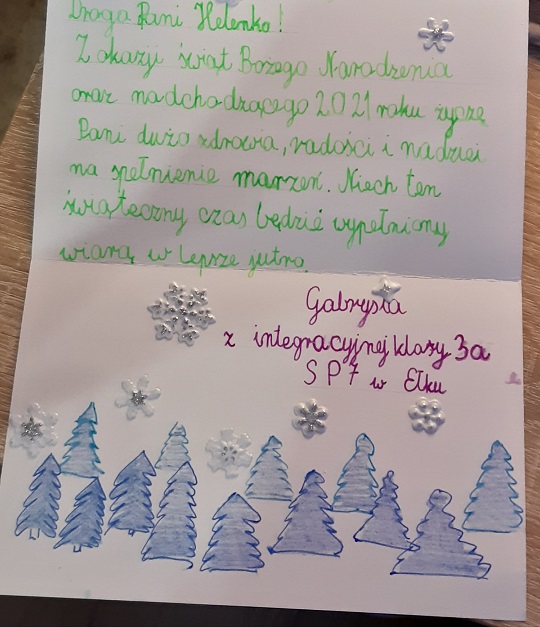 Droga Pani Helenko!
Z okazji świąt Bożego Narodzenia
oraz nadchodzącego 2021 roku życzę
Pani dużo zdrowia, radości i nadziei
na spełnienie marzeń. Niech ten
świąteczny czas będzie wypełniony
wiarą w lepsze jutro.
Gabrysia
z integracyjnej klasy 3a
SP7 w Ełku